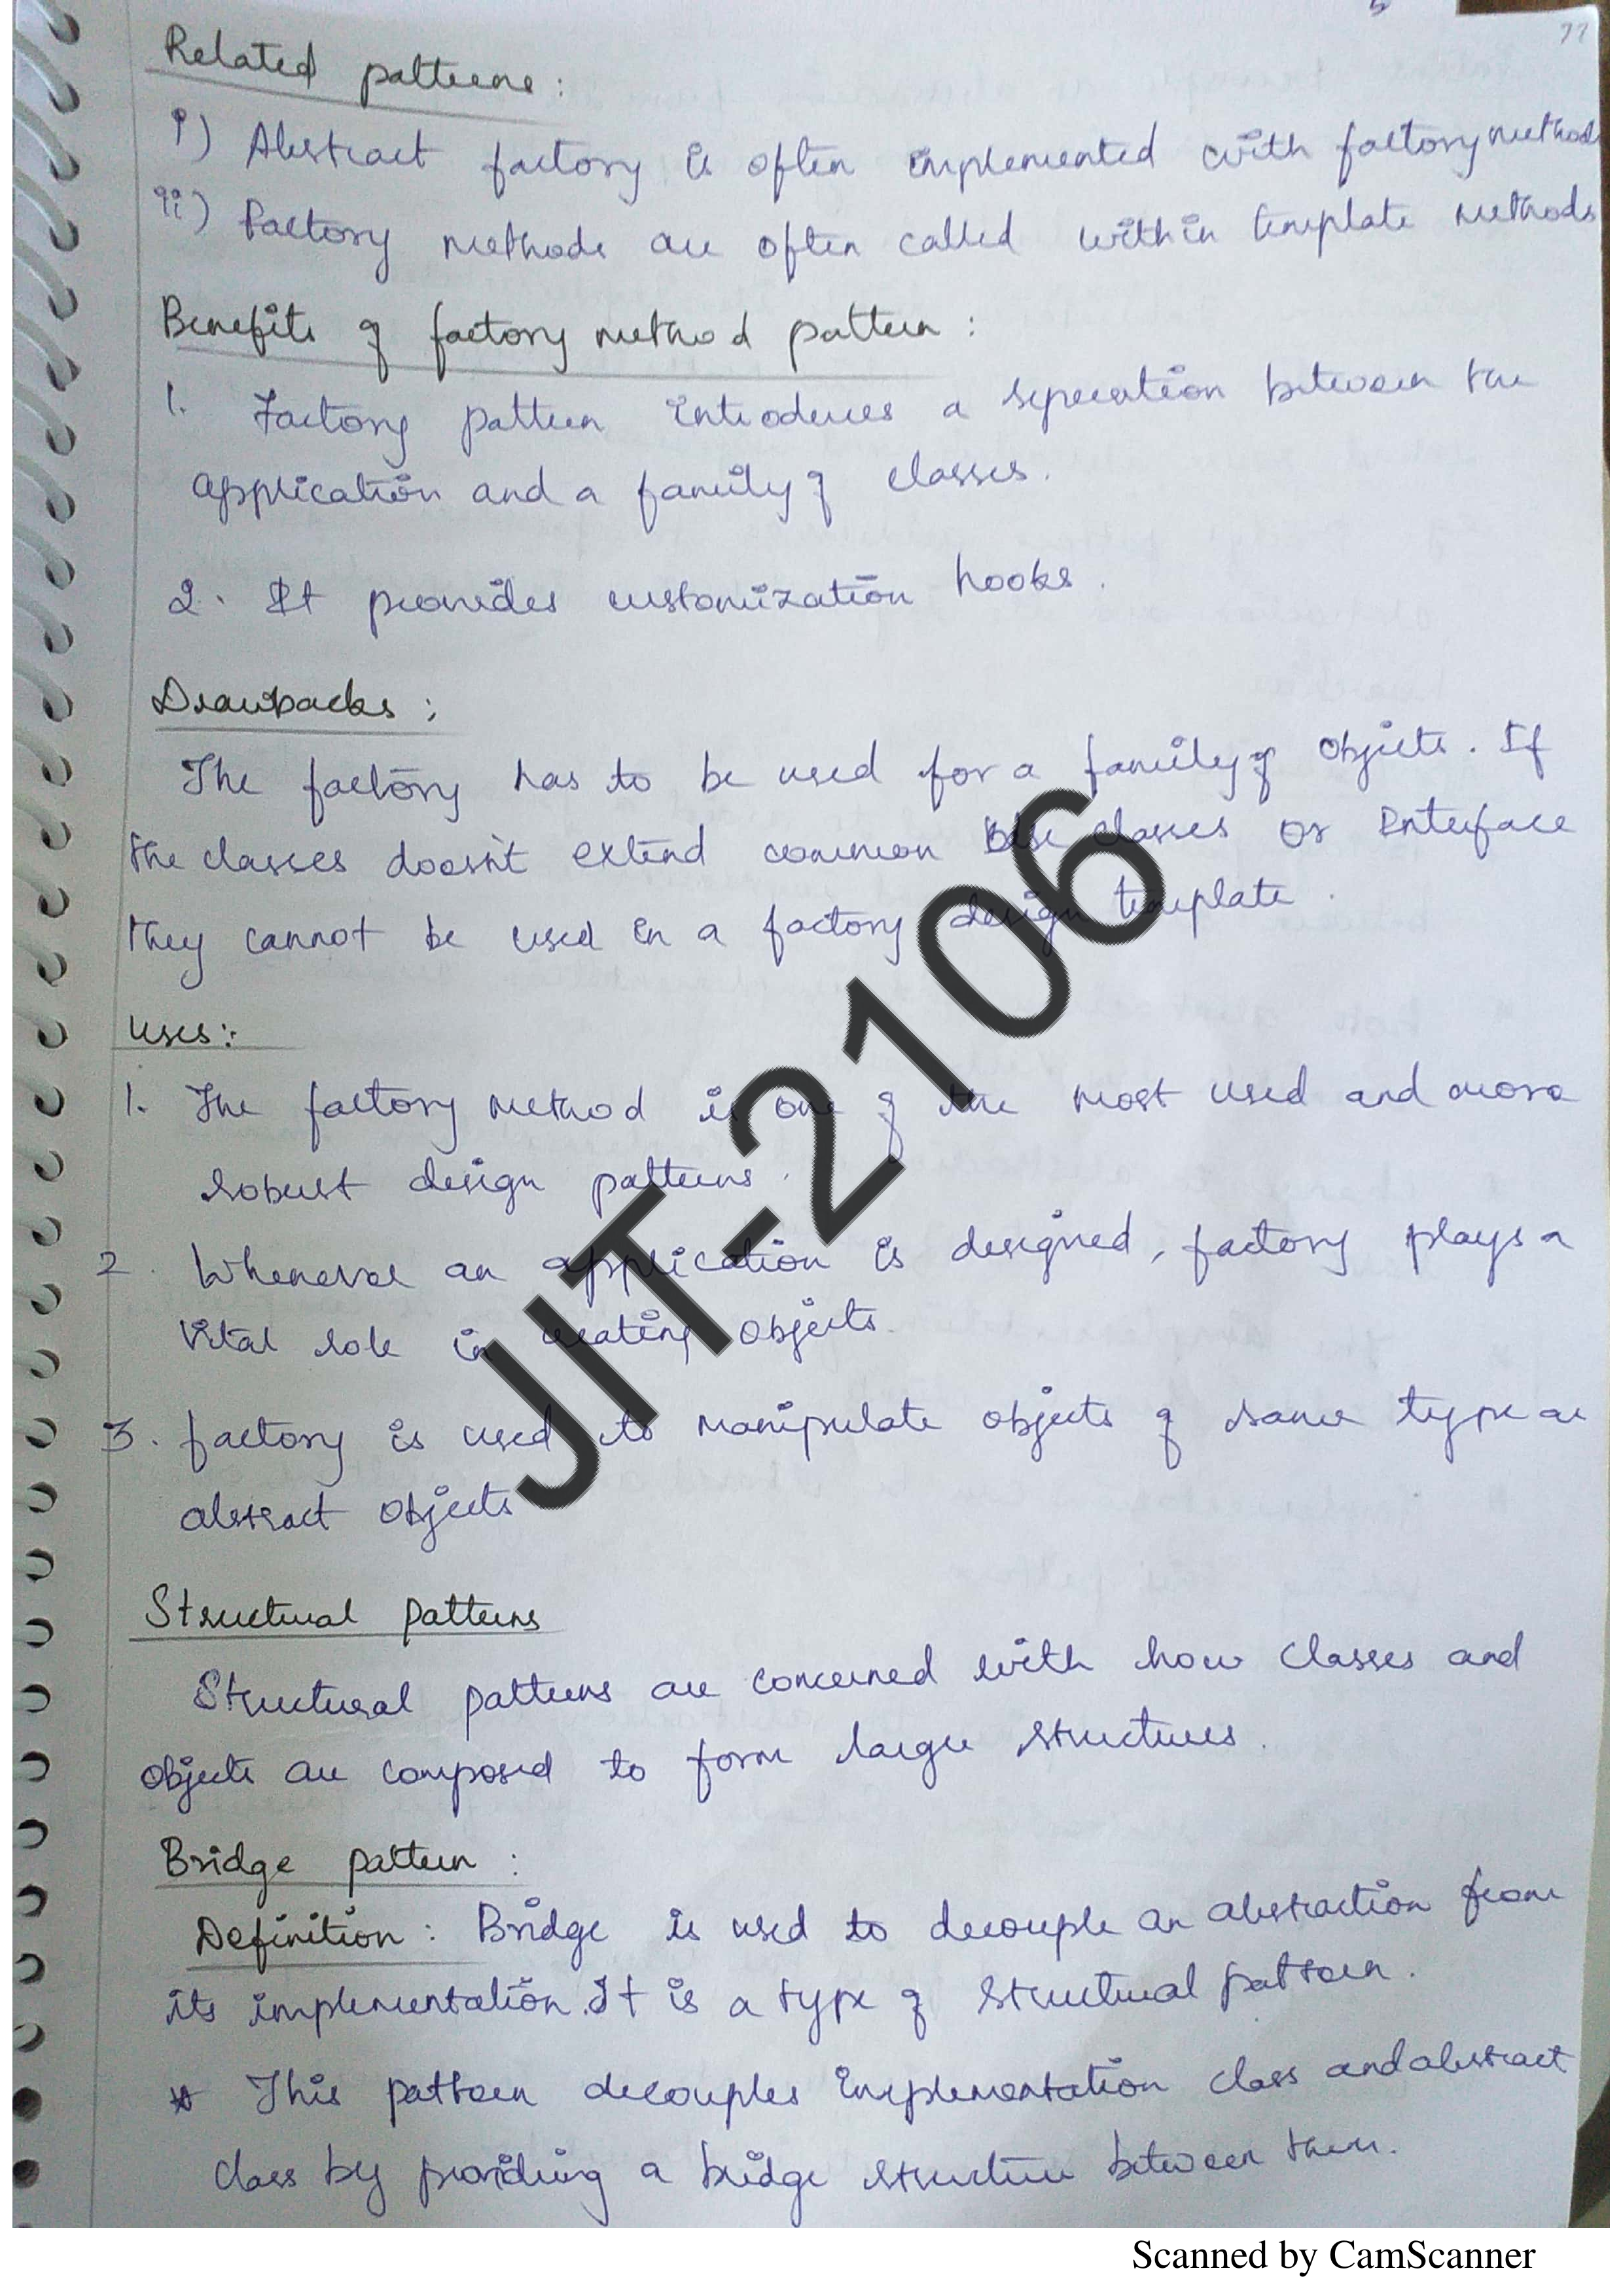 77
Related patterns :
i) Abstract factory is often implemented with factory methods
ii) Factory methods are often called within template methods
Benefits of factory method pattern :
1. Factory pattern introduces a seperation between the
application and a family of classes.
2. It provides customization hooks.
Drawbacks :
The factory has to be used for a family of objects. If
the classes doesn't extend common base classes or Interface
they cannot be used in a factory design template.
Uses :
1. The factory method is one of the most used and more
robust design patterns.
2. Whenever an application is designed, factory plays a
Vital role in creating objects.
3. factory is used to manipulate objects of same type as
abstract objects
Structural patterns
Structural patterns are concerned with how classes and
objects are composed to form larger structures.
Bridge pattern :
Definition : Bridge is used to decouple an abstraction from
its implementation. It is a type of structural pattern.
* This pattern decouples implementation class and abstract
class by providing a bridge structure between them.
JIT-2106
Scanned by CamScanner